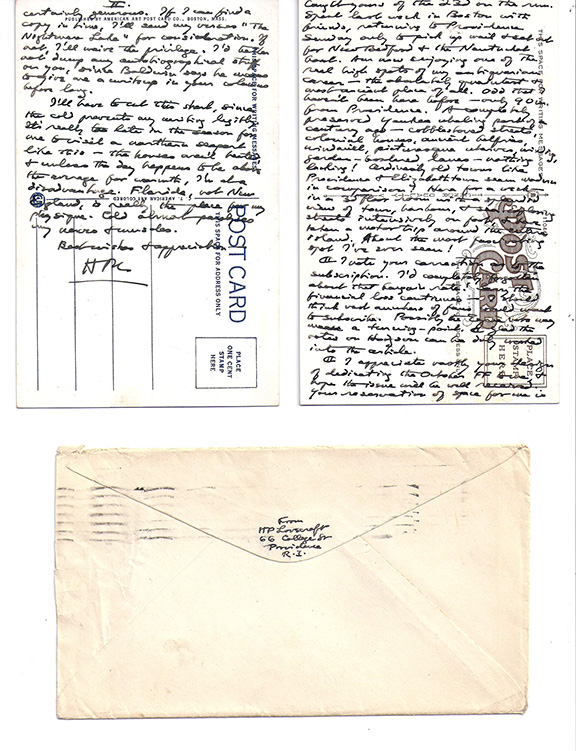 II.
PUBLISHED BY AMERICAN ART POST CARD CO., BOSTON, MASS.
certainly generous. If I can find a
copy in time, I'll send my verses "The
Nightmare Lake" for consideration. If
not, I'll waive the privilege. I'd better
not dump any autobiographical stuff
on you, since Baldwin says he wants
to give me a writeup in your column
before long.
I'll have to cut this short, since
the cold prevents any writing legibly.
It's really too late in the season for
me to visit a northern seaport
like this – the houses aren't heated
& unless the day happens to be above
the average for warmth, I'm at a
disadvantage. Florida, not New
England, is really the place for my
physique. Cold almost paralyses
my nerves & muscles.
Best wishes & appreciation
HPL
POST CARD
THIS SPACE FOR ADDRESS ONLY
PLACE
ONE CENT
STAMP
HERE
yours of the 23d on the run.
Spent last week in Boston with
friends, returning to Providence
Sunday only to pack & set out
for New Bedford & the Nantucket
boat. Am now enjoying one of the
real high spots of my antiquarian
career – the absolutely quaintest &
most ancient place of all. Odd that I
haven't been here before – only 90 m.
from Providence! A completely
preserved Yankee whaling port of a
century ago – cobblestoned streets,
colonial houses, ancient belfries,
windmill, picturesque wharves,
garden-bordered lanes – nothing
lacking! Ordinarily old towns like
Providence & seem modern
in comparison! Here for a week –
in a 3d floor room with a splendid
view of town, harbour, & sea.
streets intensively on foot, & have
taken a motor trip around the entire
island. About the most fascinating
spot I've ever seen!
¶ I note your correction
subscription. I'd completely forgotten
about that bargain rate!
financial loss continues – I should
think vast numbers of fans would want
to subscribe. Possibly the
marks a turning-point. Glad the
notes on Hodgson can be worked
into the article.
¶ I appreciate vastly your
of dedicating the October FF to me,
hope the issue will be well received.
Your reservation of space for me is
POST CARD
PLACE
STAMP
HERE
From
HP Lovecraft
66 College St
Providence
R.I.